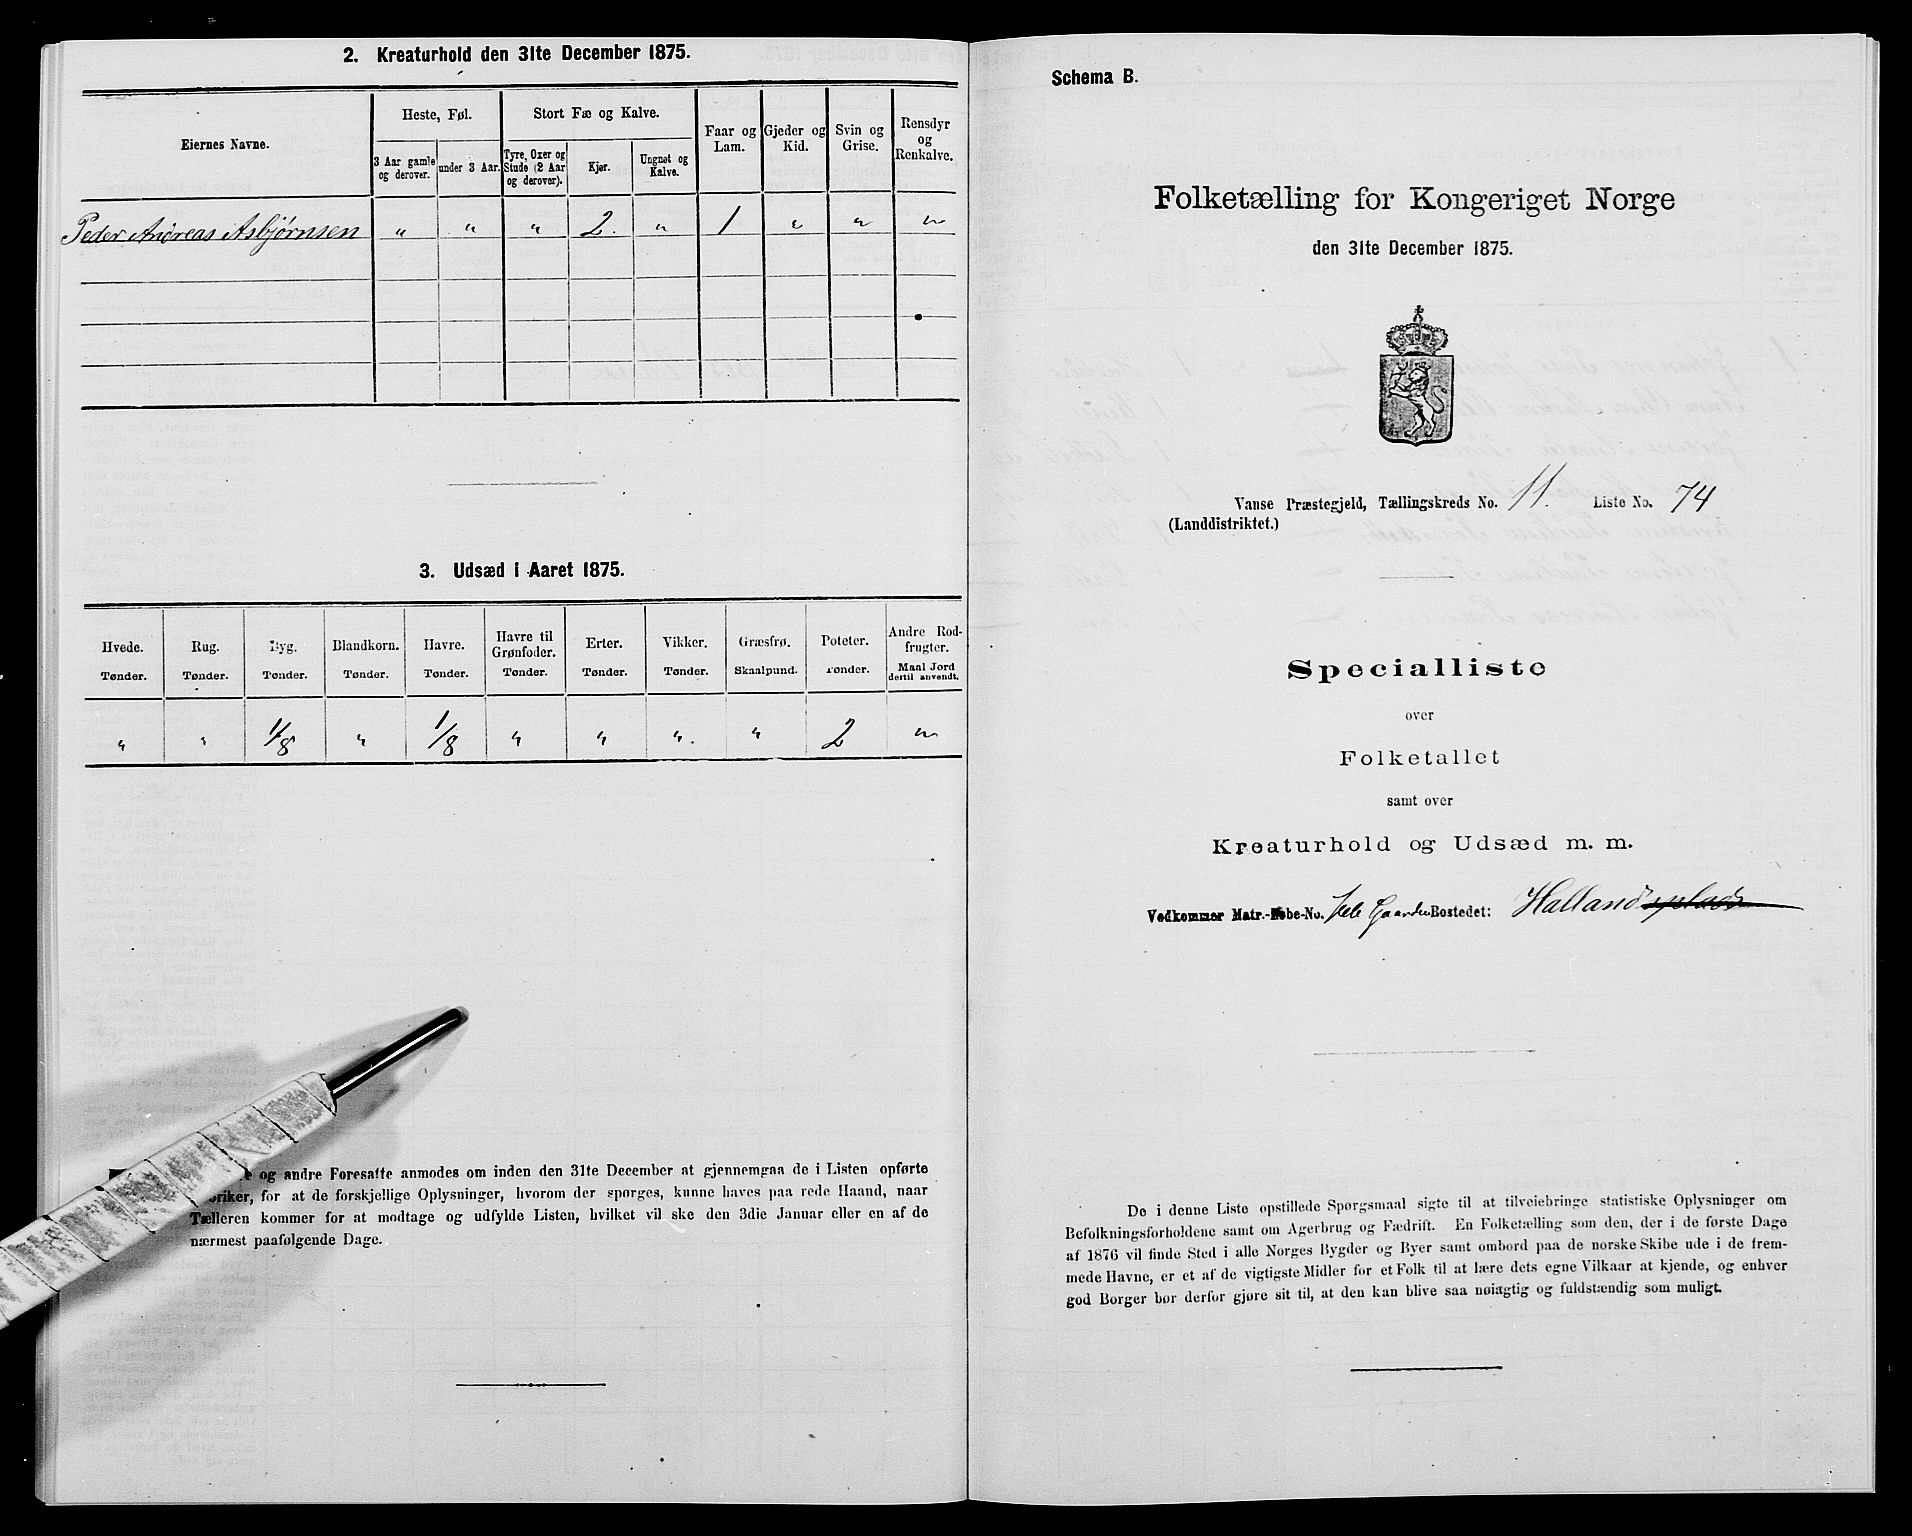 2. Kreaturhold den 31te December 1875.
Eiernes Navne.
Heste, Føl.
Stort Fæ og Kalve.
Faar og Lam.
Gjeder og Kid.
Svin og Grise.
Rensdyr og Renkalve.
3 Aar gamle og derover.
under 3 Aar.
Tyre, Oxer og Stude (2 Aar og derover).
Kjør.
Ungnøt og Kalve.
Peder Andreas Asbjørnsen " " " 2. " 1 " " "
3. Udsæd i Aaret 1875.
Hvede. Rug. Byg. Blandkorn. Havre. Havre til Grønfoder. Erter. Vikker. Græsfrø. Poteter. Andre Rodfrugter.
Tønder. Tønder. Tønder. Tønder. Tønder. Tønder. Tønder. Tønder. Skaalpund. Tønder. Maal Jord dertil anvendt.
" " 1/8 " 1/8 " " " " 2 "
og andre Foresatte anmodes om inden den 31te December at gjennemgaa de i Listen opførte
for at de forskjellige Oplysninger, hvorom der spørges, kunne haves paa rede Haand, naar
Tælleren kommer for at modtage og udfylde Listen, hvilket vil ske den 3die Januar eller en af de
nærmest paafølgende Dage.
Schema B.
Folketælling for Kongeriget Norge
den 31te December 1875.
Vanse Præstegjeld, Tællingskreds No. 11. Liste No. 74
(Landdistriktet.)
Specialliste
over
Folketallet
samt over
Kreaturhold og Udsæd m. m.
Vedkommer Matr.-Løbe-No. Hele Gaarden Bostedet: Hallandsplads
De i denne Liste opstillede Spørgsmaal sigte til at tilveiebringe statistiske Oplysninger om
Befolkningsforholdene samt om Agerbrug og Fædrift. En Folketælling som den, der i de første Dage
af 1876 vil finde Sted i alle Norges Bygder og Byer samt ombord paa de norske Skibe ude i de frem-
mede Havne, er et af de vigtigste Midler for et Folk til at lære dets egne Vilkaar at kjende, og enhver
god Borger bør derfor gjøre sit til, at den kan blive saa nøiagtig og fuldstændig som muligt.